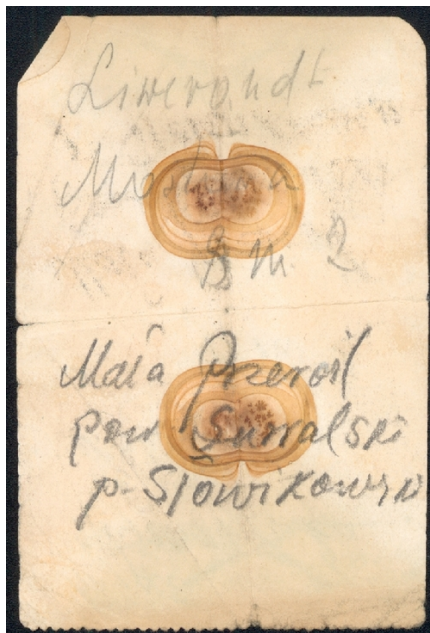 Liwerandt.
Mostowa
8 m. 2
Mała Przerośl
pow Suwalski
p. Słowikowski